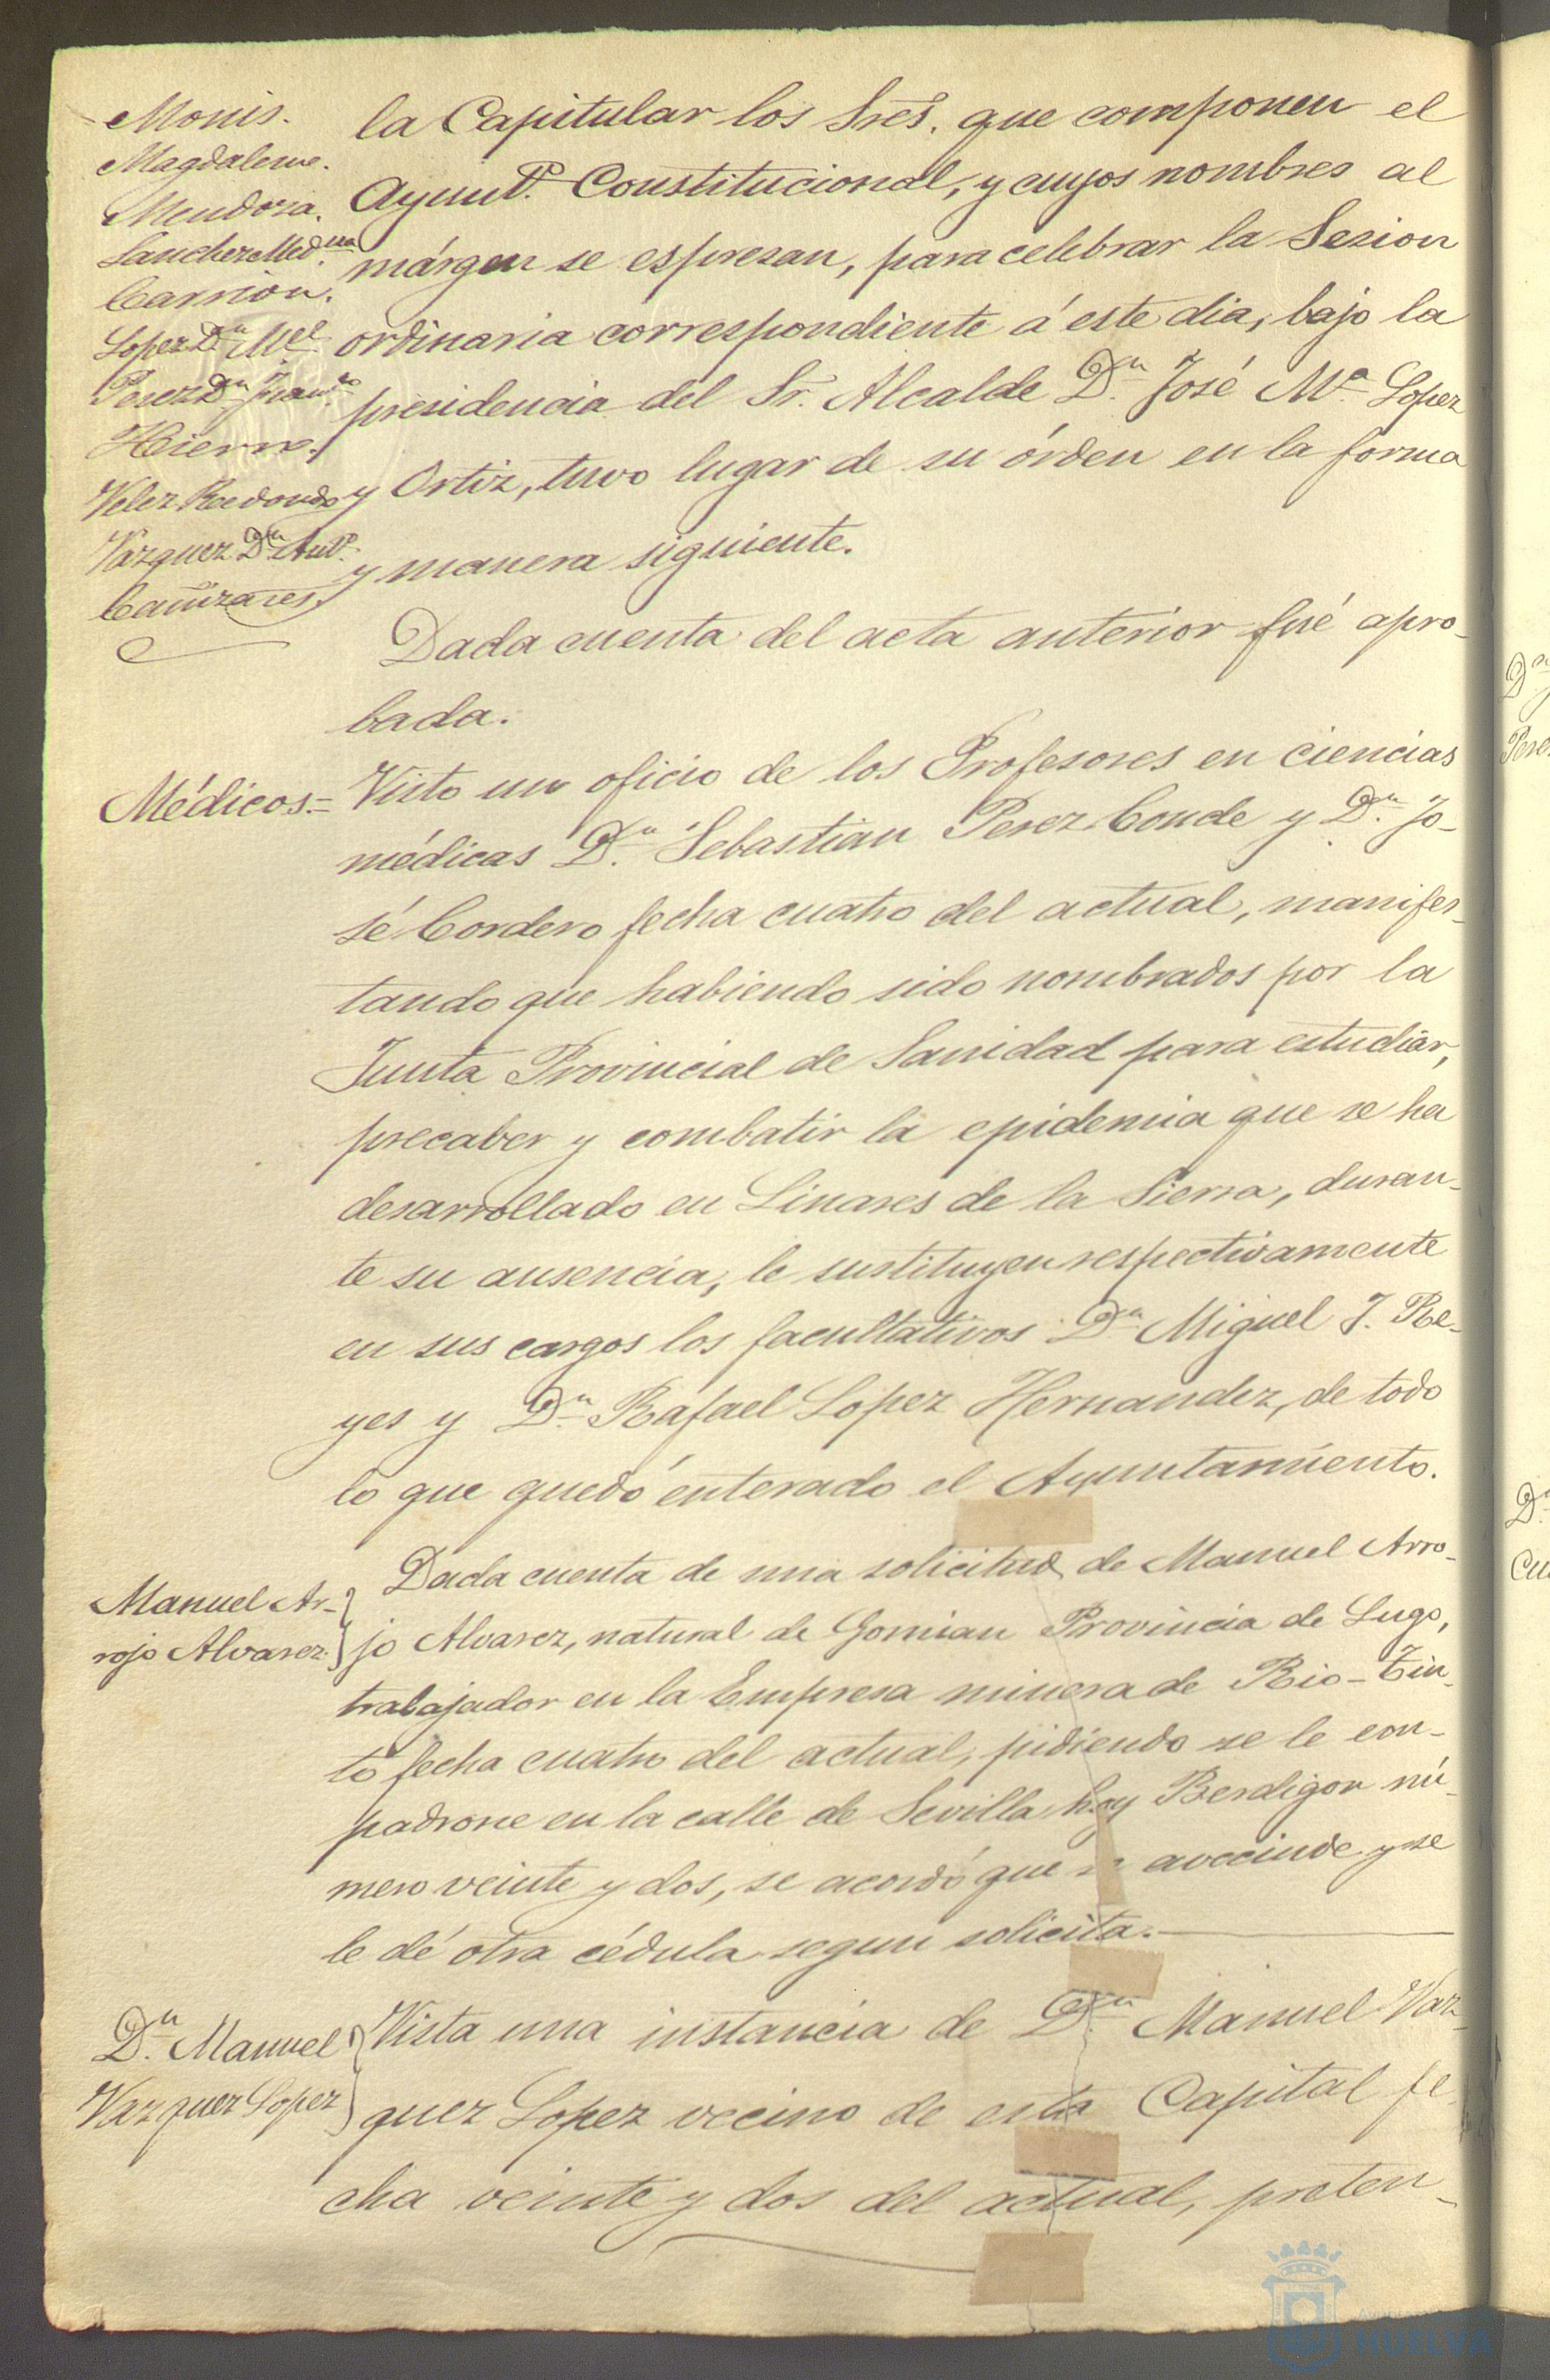 Monis.
Magdalena.
Mendoza.
Sanchez Med.ina
Carrion.
Lopez D.n M.el
Perez D.n Fran.co
Hierro.
Velez Redondo
Vazquez D.n Ant.o
Cañizares.
la Capitular los Sres. que componen el
Ayunt.o Constitucional, y cuyos nombres al
márgen se espresan, para celebrar la Sesion
ordinaria correspondiente á este dia, bajo la
presidencia del Sr. Alcalde D.n José M.a Lopez
y Ortiz, tuvo lugar de su órden en la forma
y manera siguiente.
Dada cuenta del acta anterior fué apro-
bada.
Médicos=
Visto un oficio de los Profesores en ciencias
médicas D.n Sebastian Perez Conde y D.n Jo-
sé Cordero fecha cuatro del actual, manifes-
tando que habiendo sido nombrados por la
Junta Provincial de Sanidad para estudiar,
precaber y combatir la epidemia que se ha
desarrollado en Linares de la Sierra, duran-
te su ausencia, le sustituyen respectivamente
en sus cargos los facultativos D.n Miguel J. Re-
yes y D.n Rafael Lopez Hernandez, de todo
lo que quedó enterado el Ayuntamiento.
Manuel Ar-
rojo Alvarez
Dada cuenta de una solicitud de Manuel Arro-
jo Alvarez, natural de Gomian Provincia de Lugo,
trabajador en la Empresa minera de Rio-Tin-
to fecha cuatro del actual, pidiendo se le em-
padrone en la calle de Sevilla hoy Berdigon nú-
mero veinte y dos, se acordó que se avecinde y se
le dé otra cédula segun solicita.
D.n Manuel
Vazquez Lopez
Vista una instancia de D.n Manuel Vaz-
quez Lopez vecino de esta Capital fe-
cha veinte y dos del actual, preten-
D.n
Perez
D.n
Cu
HUELVA